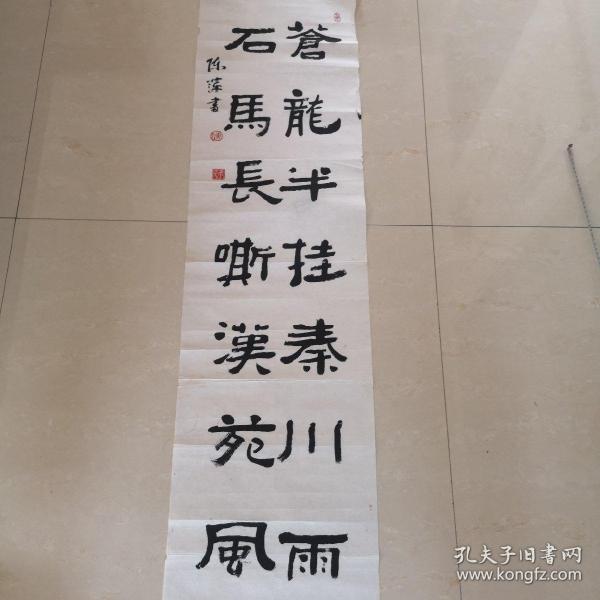 蒼龍半挂秦川雨
石馬長嘶漢苑風
陈
書
孔夫子旧書网
www.kongfz.com